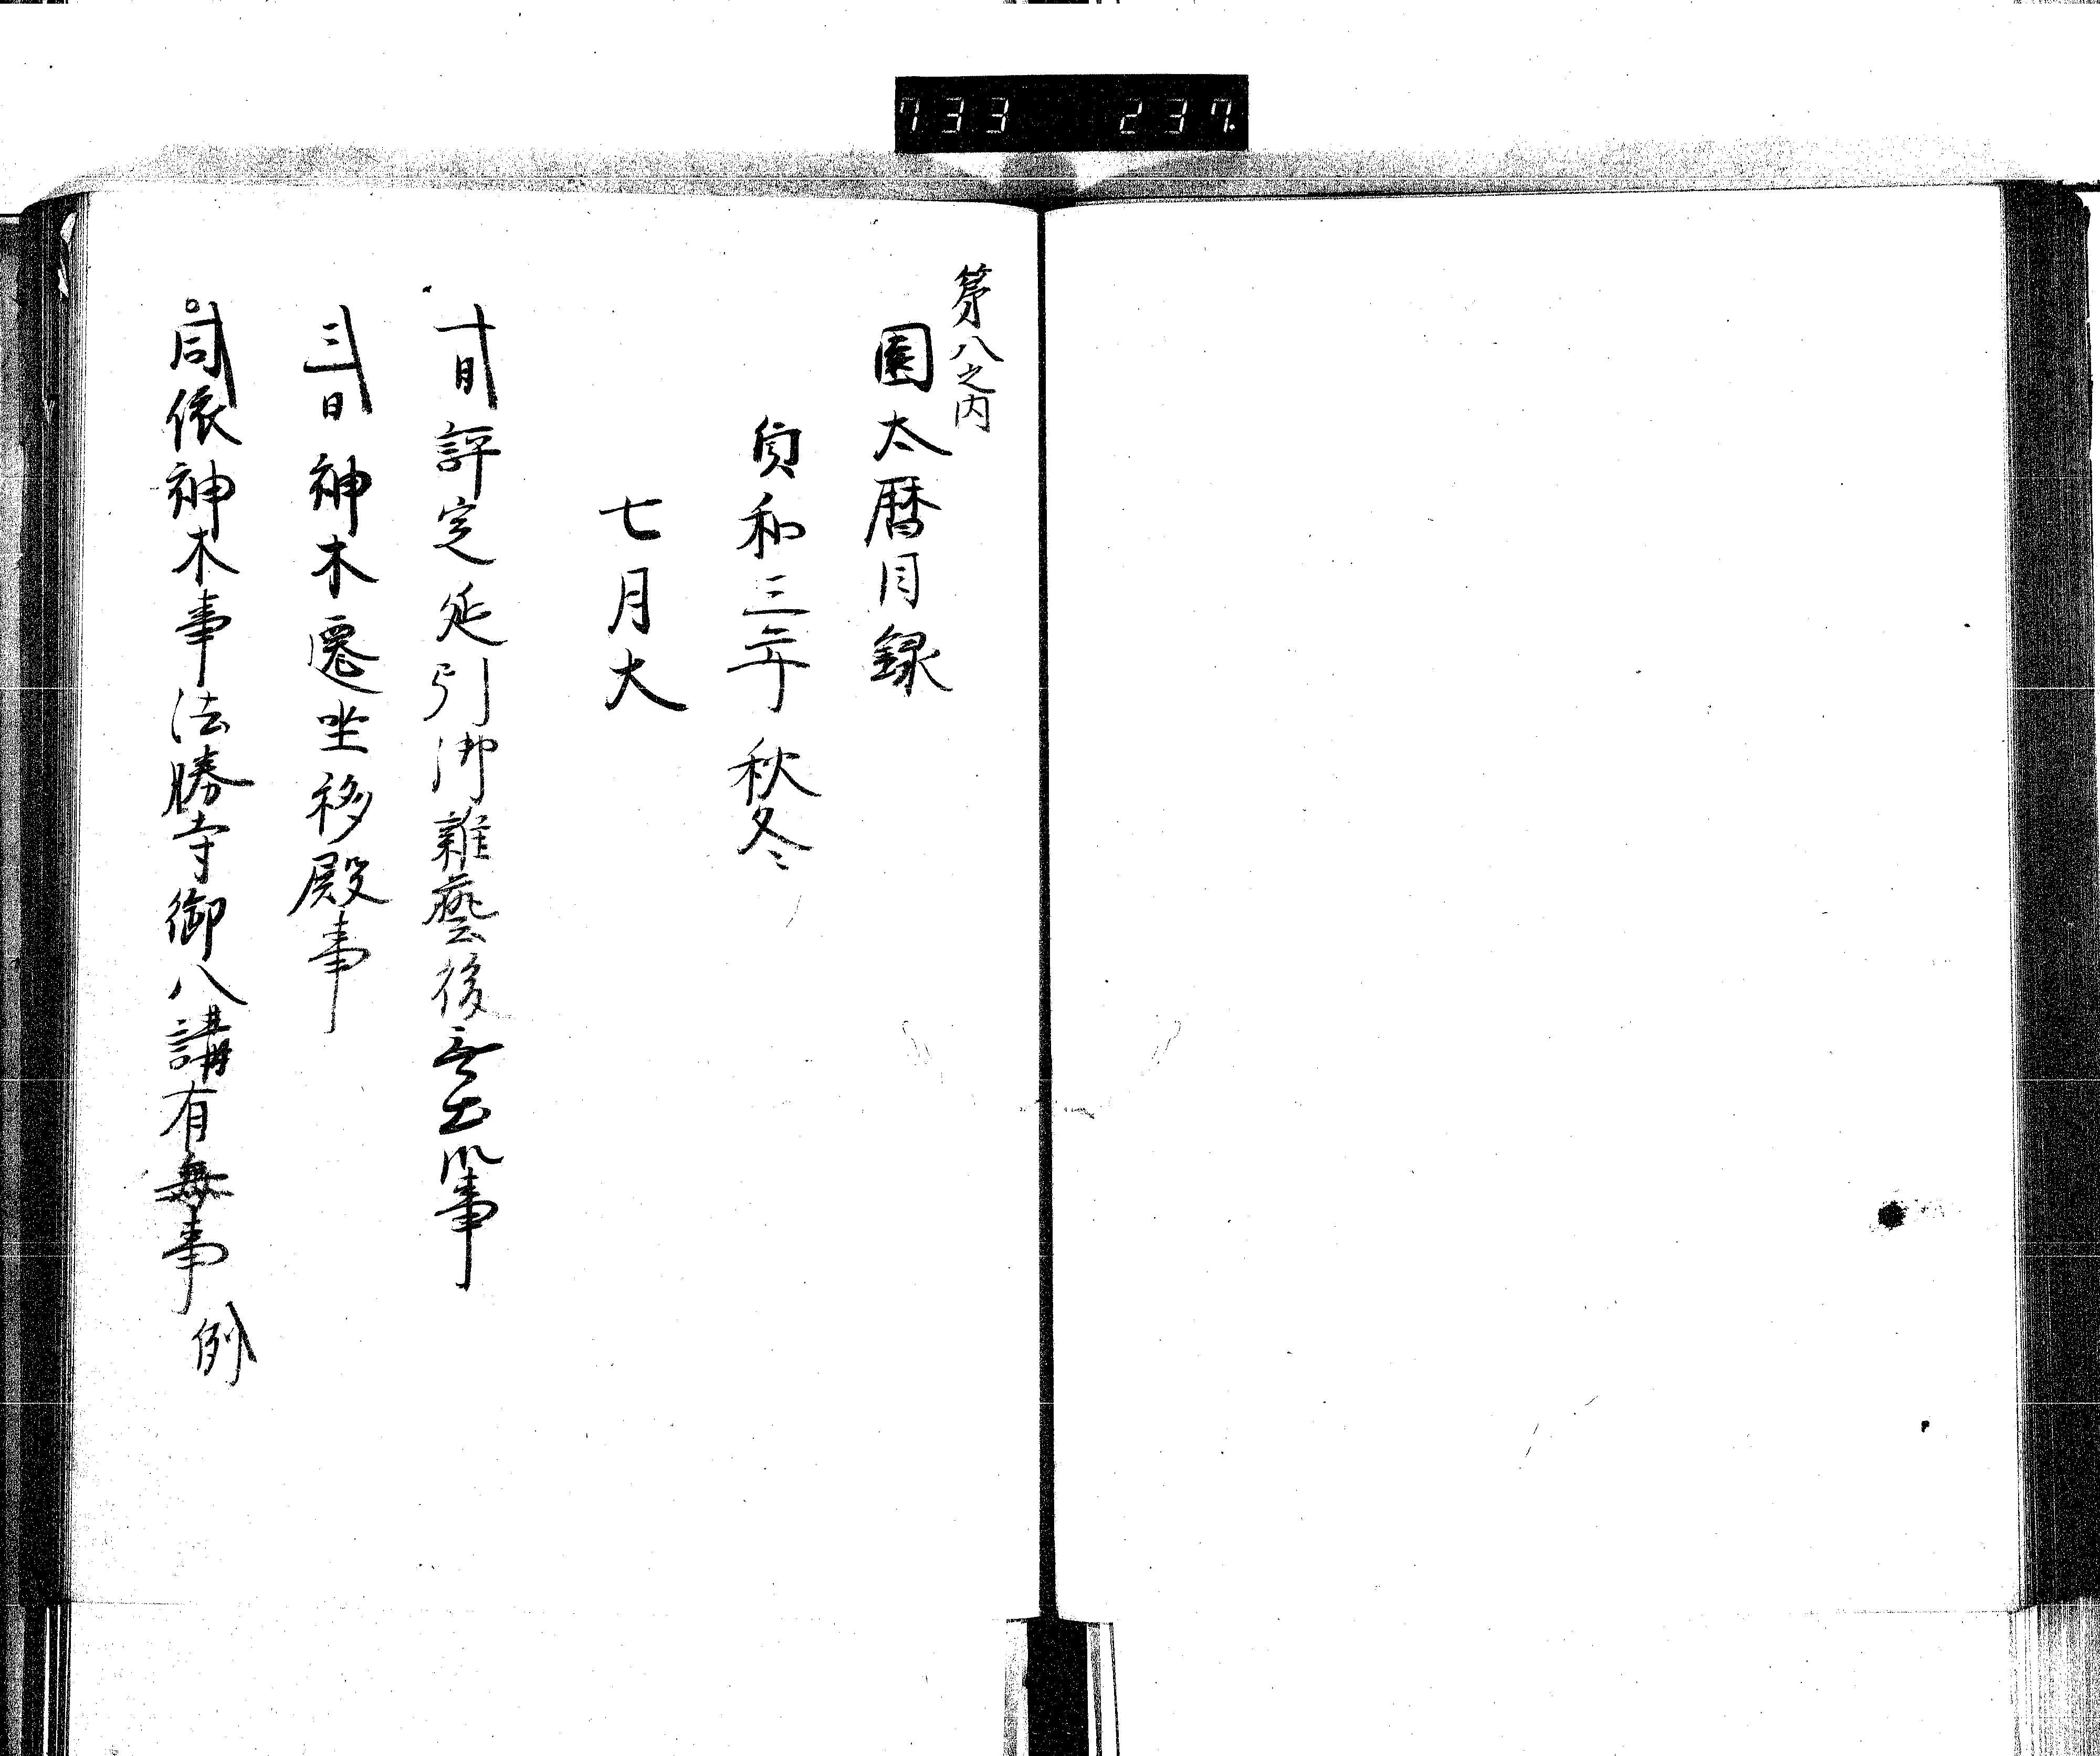 733 237.
第八之内
園太暦目録
貞和三年 秋冬
七月大
一日評定延引御雑藝後無出御事
三日神木遷坐移殿事
同依神木事法勝寺御八講有無事 例